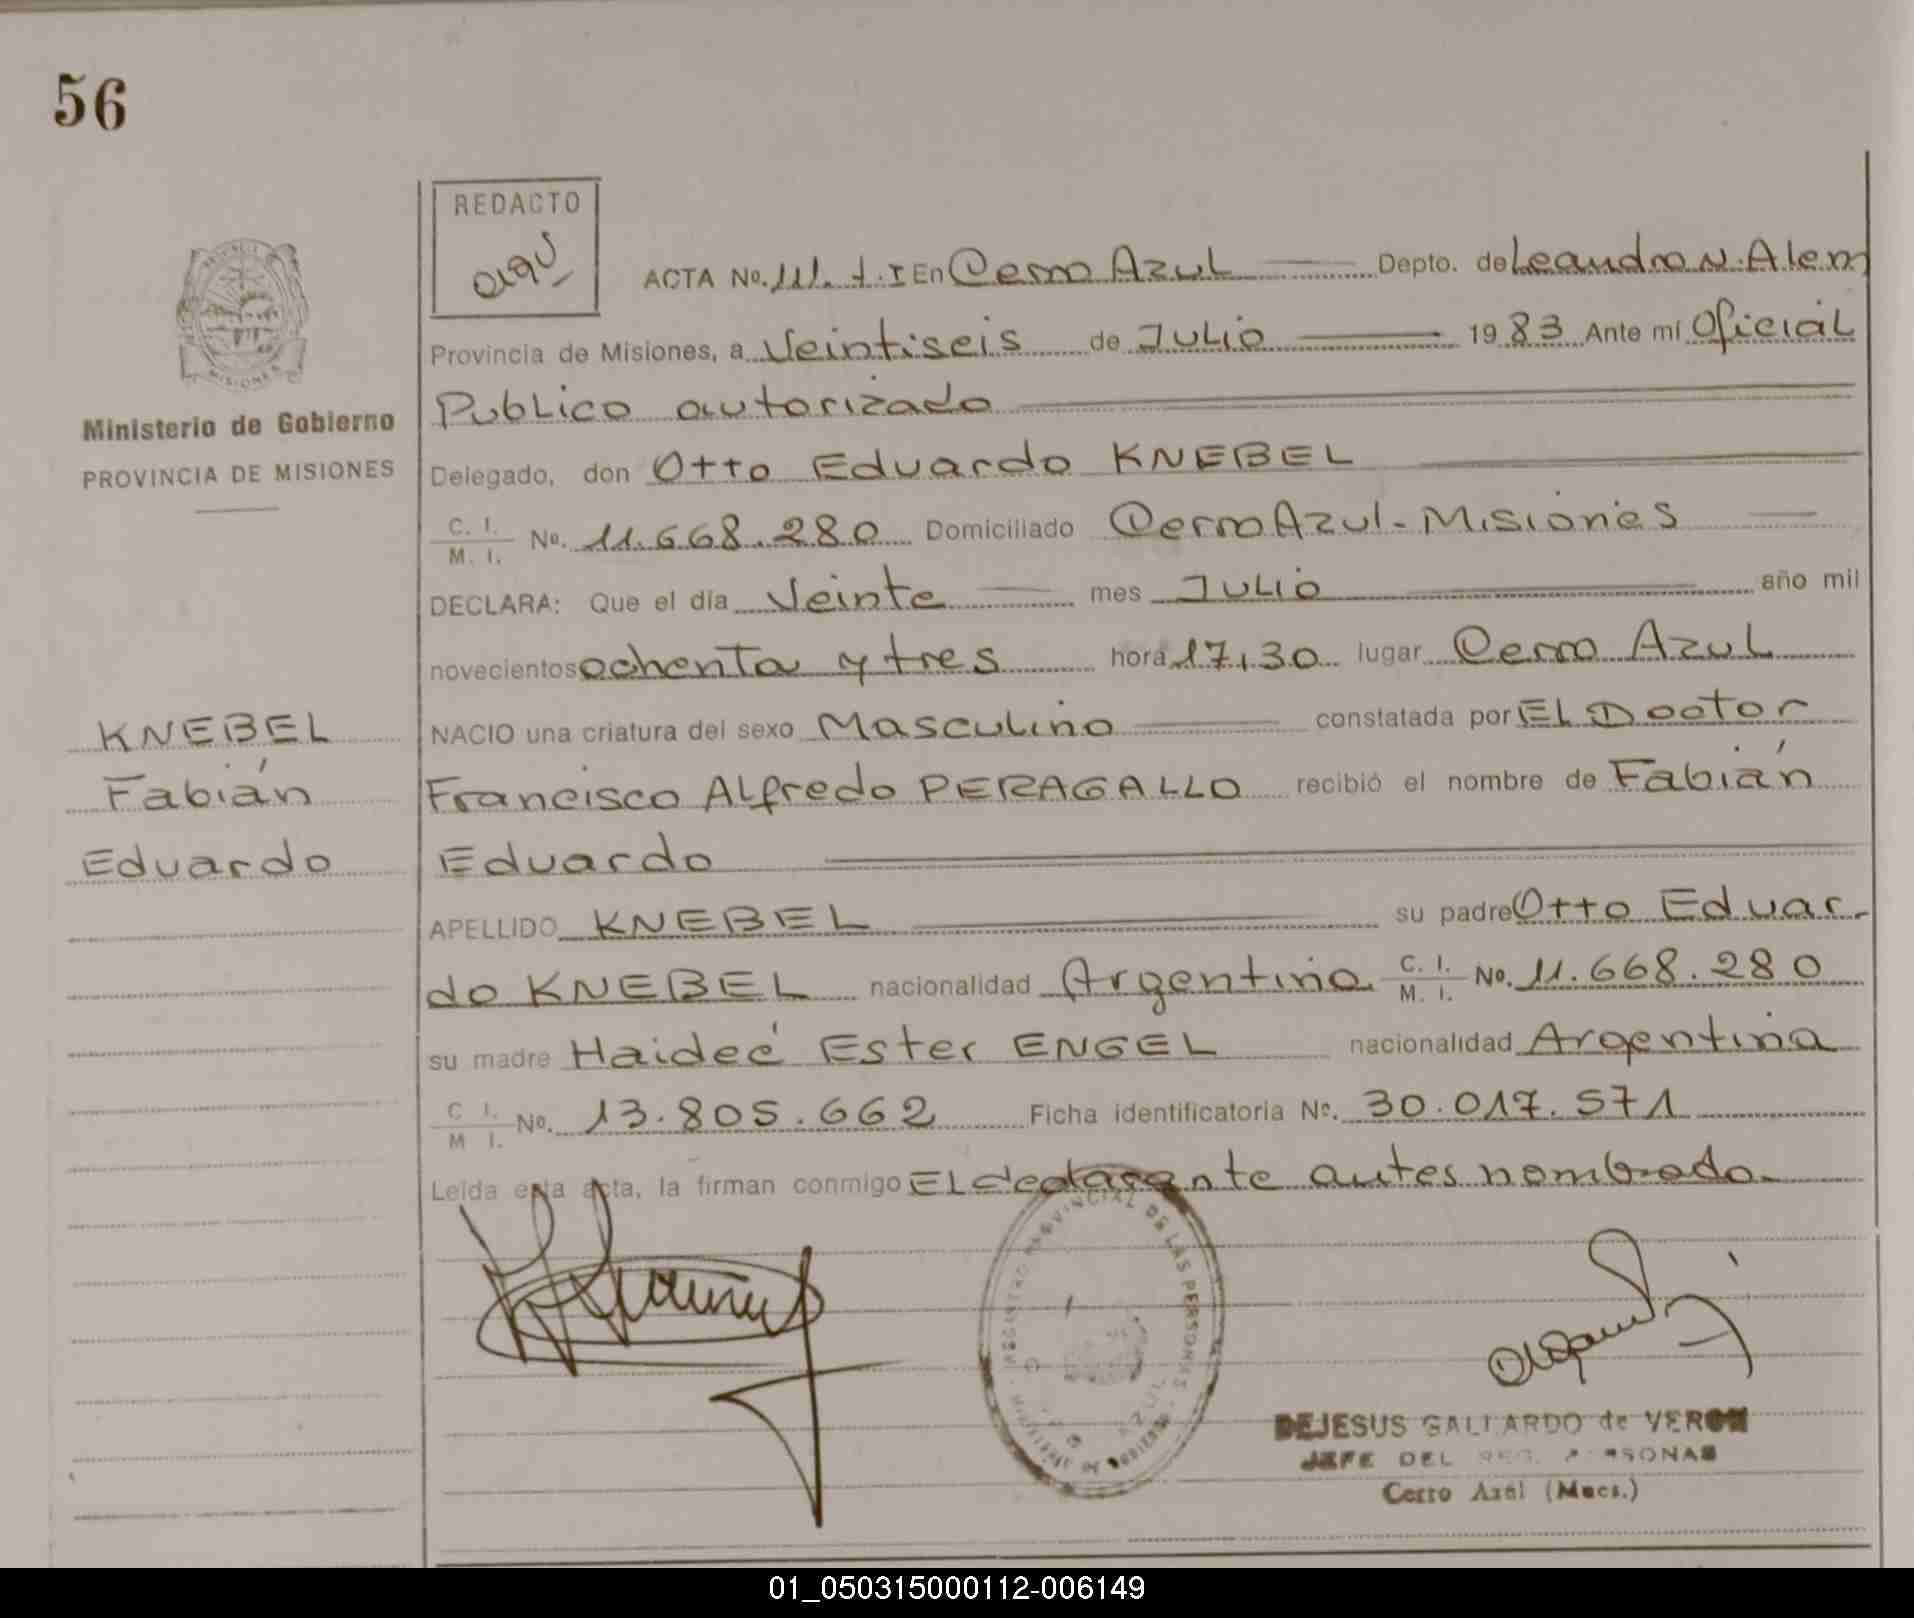 56
REDACTO
ACTA No. 111. t. I En Cerro Azul Depto. de Leandro N. Alem
Provincia de Misiones, a Veintiseis de Julio 1983 Ante mí Oficial
Publico autorizado
Delegado, don Otto Eduardo KNEBEL
C. I. / M. I. No. 11.668.280 Domiciliado Cerro Azul - Misiones
DECLARA: Que el día Veinte mes Julio año mil
novecientos ochenta y tres hora 17,30 lugar Cerro Azul
NACIO una criatura del sexo Masculino constatada por El Doctor
Francisco Alfredo PERAGALLO recibió el nombre de Fabián
Eduardo
APELLIDO KNEBEL su padre Otto Eduar-
do KNEBEL nacionalidad Argentino C. I. / M. I. No. 11.668.280
su madre Haideé Ester ENGEL nacionalidad Argentina
C I. / M I. No. 13.805.662 Ficha identificatoria No. 30.017.571
Leida esta acta, la firman conmigo El declarante antes nombrado.
MISIONES
Ministerio de Gobierno
PROVINCIA DE MISIONES
KNEBEL
Fabián
Eduardo
REGISTRO PROVINCIAL DE LAS PERSONAS
DEJESUS GALLARDO de VERON
JEFE DEL REG. PERSONAS
Cerro Azul (Mnes.)
01_050315000112-006149